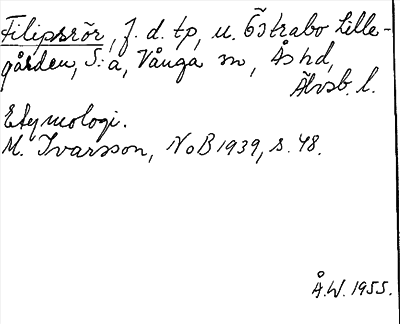 Filipsrör, f. d. tp, u. Östrabo Lille-
gården, S:a, Vånga sn, Ås hd,
Älvsb. l.
Etymologi.
M. Ivarsson, NoB 1939, s. 48.
Å.W. 1955.